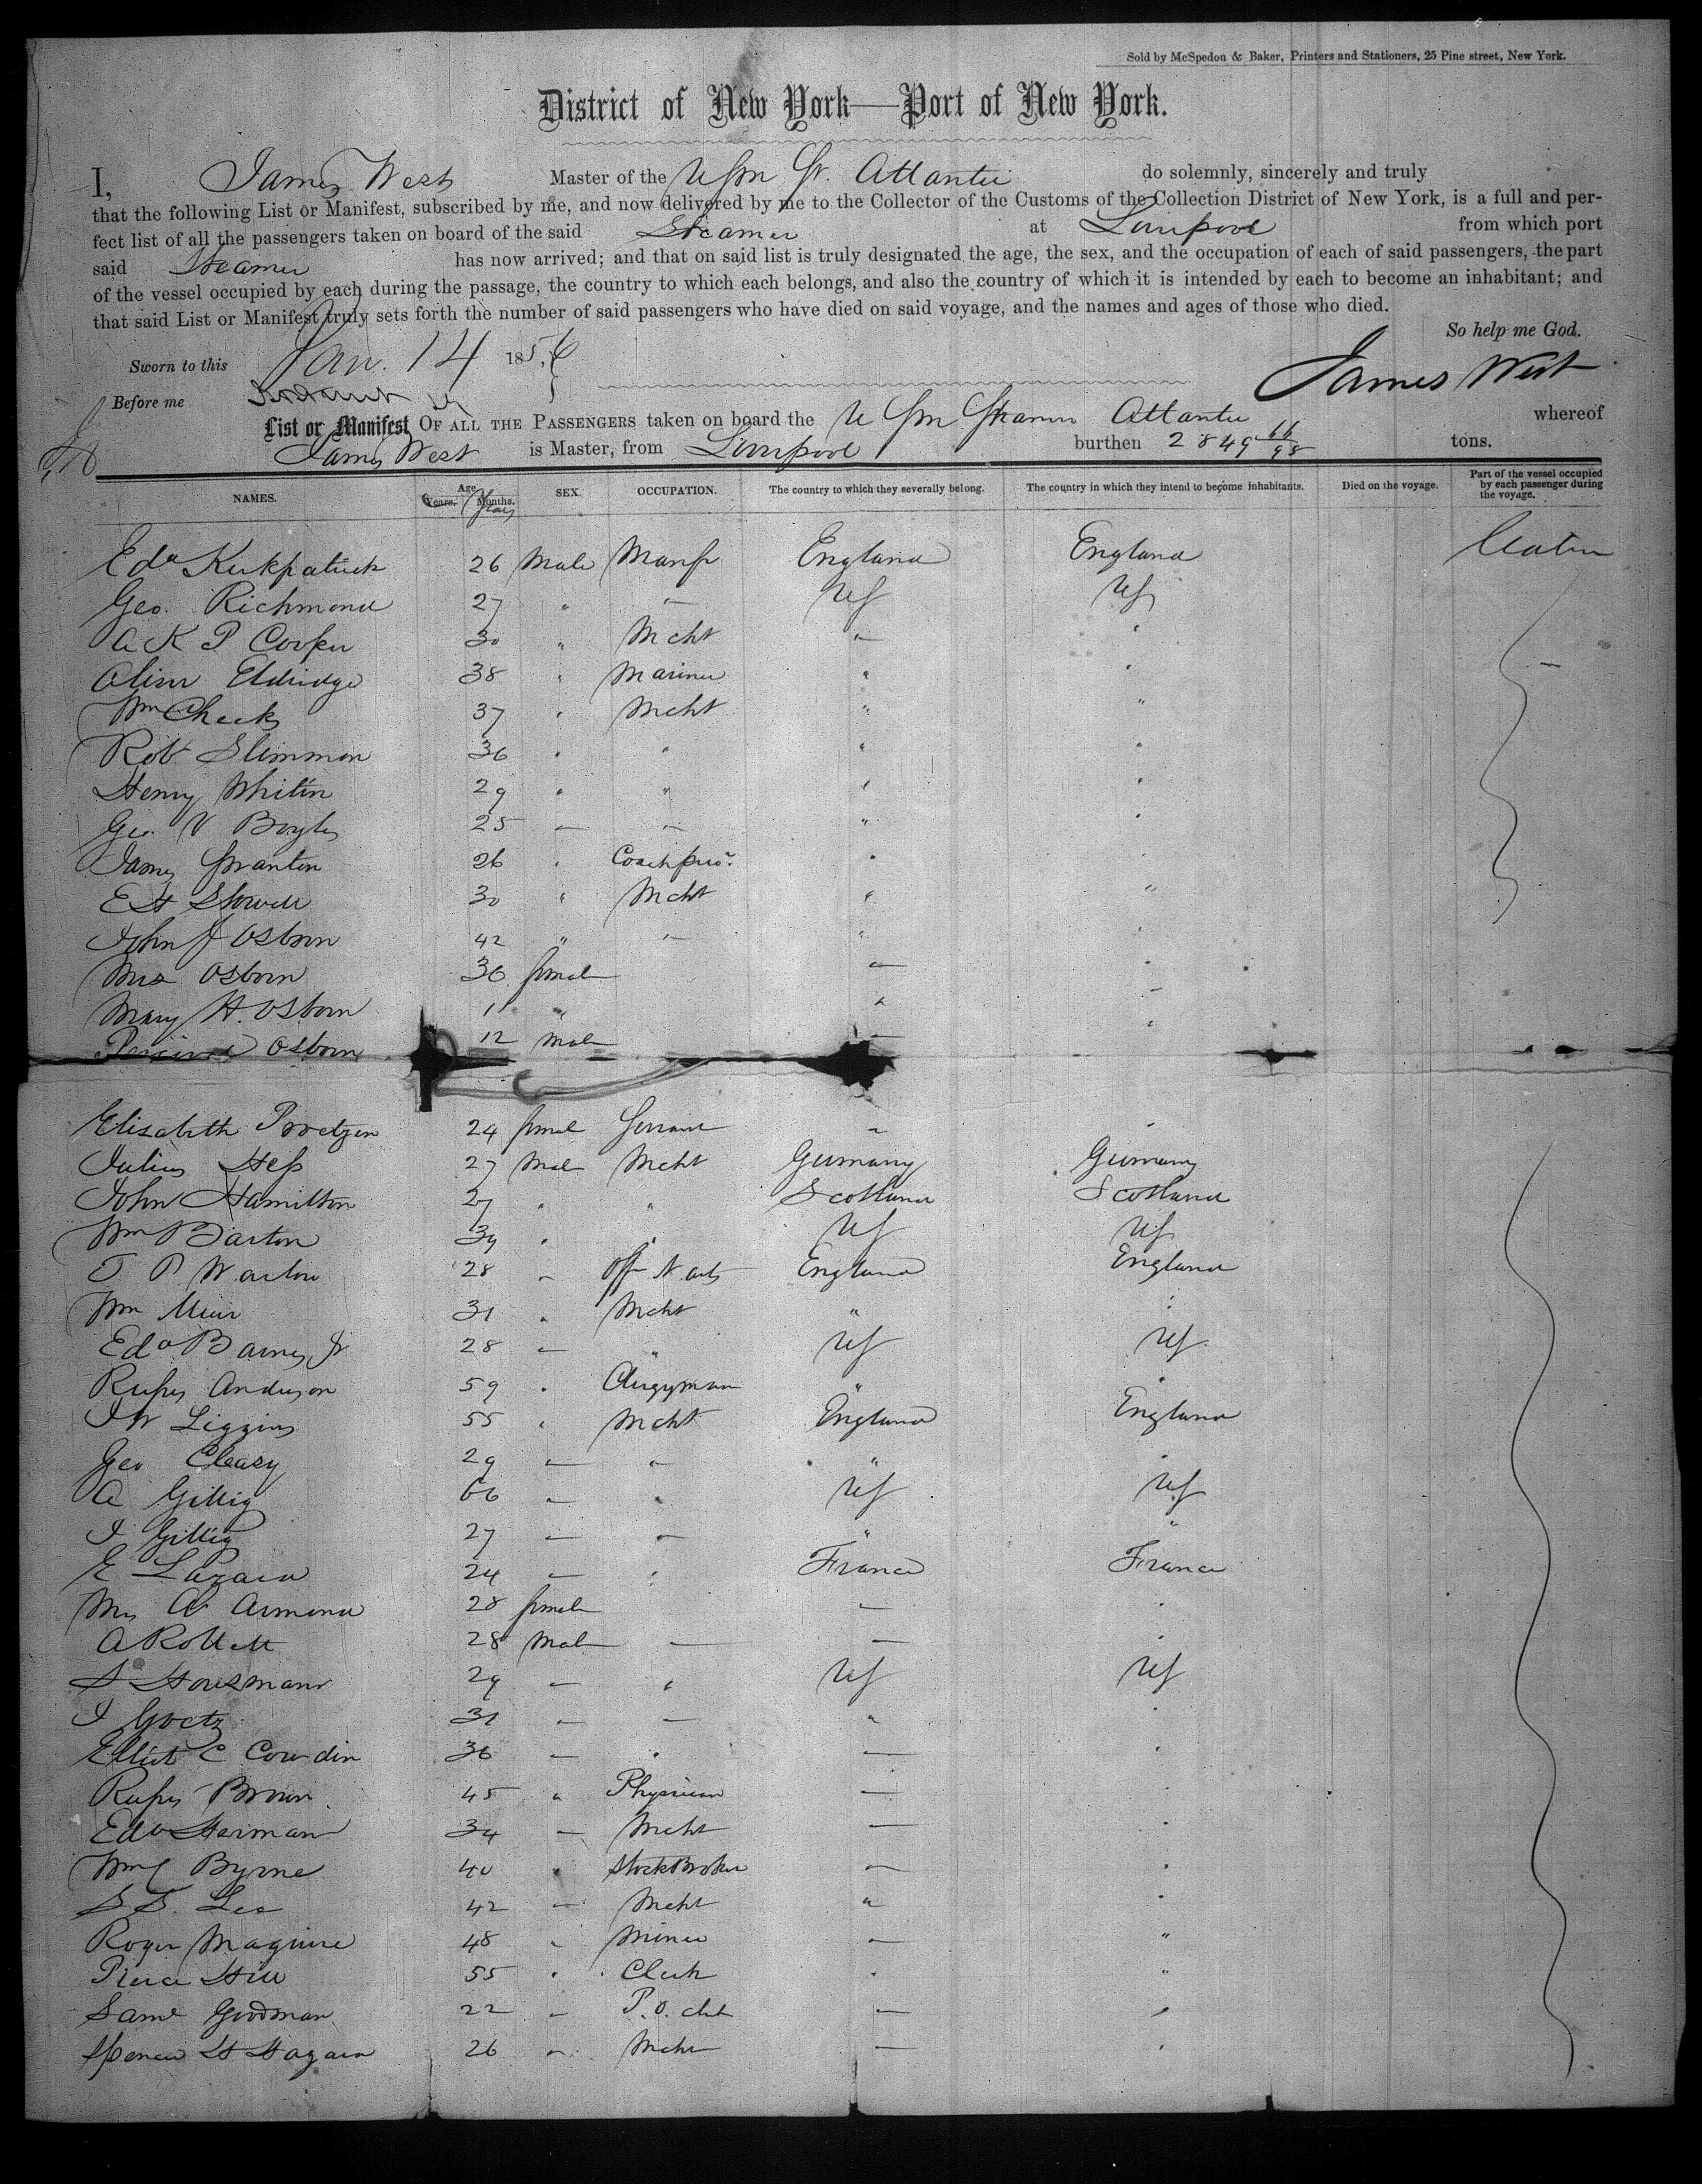 Sold by McSpedon & Baker, Printers and Stationers, 25 Pine street, New York.
District of New York—Port of New York.
I, James West Master of the USM St. Atlantic do solemnly, sincerely and truly
that the following List or Manifest, subscribed by me, and now delivered by me to the Collector of the Customs of the Collection District of New York, is a full and per-
fect list of all the passengers taken on board of the said Steamer at Liverpool from which port
said Steamer has now arrived; and that on said list is truly designated the age, the sex, and the occupation of each of said passengers, the part
of the vessel occupied by each during the passage, the country to which each belongs, and also the country of which it is intended by each to become an inhabitant; and
that said List or Manifest truly sets forth the number of said passengers who have died on said voyage, and the names and ages of those who died.
So help me God.
Sworn to this Jan. 14 1856
James West
Before me
List or Manifest OF ALL THE PASSENGERS taken on board the U S M Steamer Atlantic whereof
James West is Master, from Liverpool burthen 2849 66/95 tons.
NAMES. Age Years. Months. Years SEX. OCCUPATION. The country to which they severally belong. The country in which they intend to become inhabitants. Died on the voyage. Part of the vessel occupied by each passenger during the voyage.
Edd Kirkpatrick 26 Male Manfr England England Cabin
Geo. Richmond 27 " — US US
A K P Cooper 30 " Mcht — "
Oliver Eldridge 38 " Mariner " " —
Wm Cheeks 37 " Mcht " "
Robt Slimmon 36 " " " "
Henry Whitin 29 " " " "
Geo. V Boyles 25 — — " "
James Swanton 26 " " "
E H Stowell 30 " Mcht " "
John J Osborn 42 " — " "
Mrs Osborn 36 female — "
Mary H. Osborn 11 " " —
Percival Osborn 12 Male — "
Elisabeth 24 female Servant — —
Julius Hess 27 Male Mcht Germany Germany
John Hamilton 27 " " Scotland Scotland
Wm Barton 39 " " US US
T P Warlow 28 — England England
Wm Muir 31 " Mcht " "
Edd Barnes Jr 28 — " US US
Rufus Anderson 59 " Clergyman " "
J W Liggins 55 " Mcht England England
Geo Cleasy 29 — — " "
A Gillig 66 — " US US
J Gillig 27 — — " "
E Lazard 24 — " France France
Mrs Armand 28 female — "
A Rollett 28 Male — — "
S Housmann 29 — " US US
J Goetz 31 — — " "
Elliot C Cowdin 36 — " — "
Rufus Brown 45 " Physician — "
Edd Herman 34 — Mcht — "
Wm J Byrne 40 " Stock Broker — "
S. T. Lee 42 — Mcht " "
Roger Maguire 48 " Miner — "
Pierce Hill 55 " Clerk " "
Saml Goodman 22 — P. O. clk — "
Spencer H 26 " Mcht — "